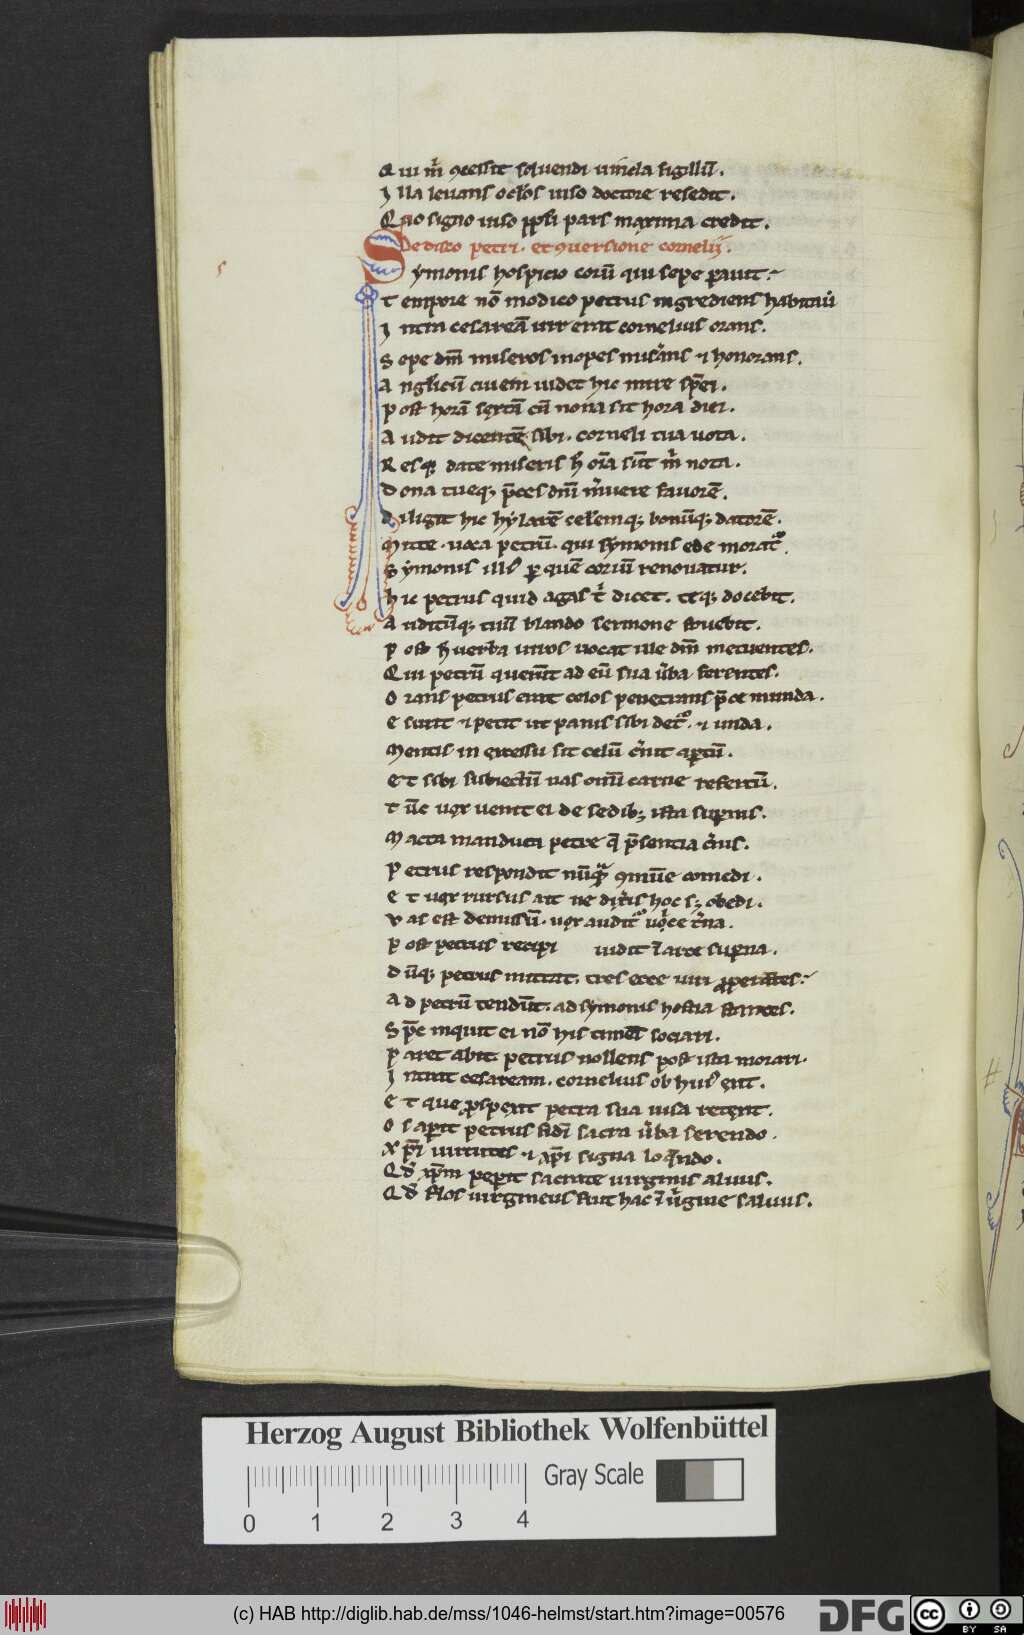 Qui m̅ ꝯcessit soluendi uincla sigilli.
Illa leuans oclos uiso doctore resedit.
Quo signo uiso ppli pars maxima credit.
De disco petri. et ꝯuersione cornelij.
Symonis hospicio coriū qui sepe parauit
Tempore nō modico petrus ingrediens habitauit
Intm cesareā uir erat cornelius orans.
Sepe dm̄ miseros inopes misans ⁊ honorans.
Anglicū ciuem uidet hic mire spēi.
Post horā sextā cū nona sit hora diei.
Audit dicentē sibi. corneli tua uota.
Resq; date miseris h̄ oīa sūt m̅ nota.
Dona tueq; p̄ces dm̄ mūere fauorē.
Diligit hic hylarē celemq; bonūq; datorē.
Mitte. uoca petrū. qui symonis ede morat.
Symonis illi per quē coriū renouatur.
Hic petrus quid agas t̄ dicet. teq; docebit.
Auditūq; tuū blando sermone fouebit.
Post h̄ uerba uiros uocat ille dm̄ metuentes.
Qui petrū querūt ad eū sua ūba ferentes.
Orans petrus erat celos penetrans p̄ce munda.
Esurit ⁊ petit ut panis sibi det. ⁊ unda.
Mentis in excessu sit celū c̄nit aptū.
Et sibi subiectū uas omī carne refertū.
Tūc uox uenit ei de sedib; ista supnis.
Macta manduca petre q̄ p̄sentia c̄nis.
Petrus respondit nūq ꝯmune comedi.
Et uox rursus ait ne dixis hoc s; obedi.
Vas est demissū. uox audit uoce t̄na.
Post petrus recipi uidit ī arce supna.
Dūq; petrus mutat. tres ecce uiri properantes
Ad petrū tendūt. ad symonis hostia stantes.
Sp̄c inquit ei nō his timeas sociari.
Paret abit petrus nollens post ista morari.
Intrat cesaream. cornelius obhuius erit.
Et que prospexit petra sua uisa retexit.
Os aperit petrus fidī sacra ūba serendo.
Xp̄i uirtutes ⁊ xp̄i signa loqndo.
Qd̄ xp̄m peperit sacrate uirginis aluus.
Qd̄ flos uirgineus fiuit hac ī uīgine saluus.
Herzog August Bibliothek Wolfenbüttel
Gray Scale
0 1 2 3 4
(c) HAB http://diglib.hab.de/mss/1046-helmst/start.htm?image=00576
DFG
cc BY SA